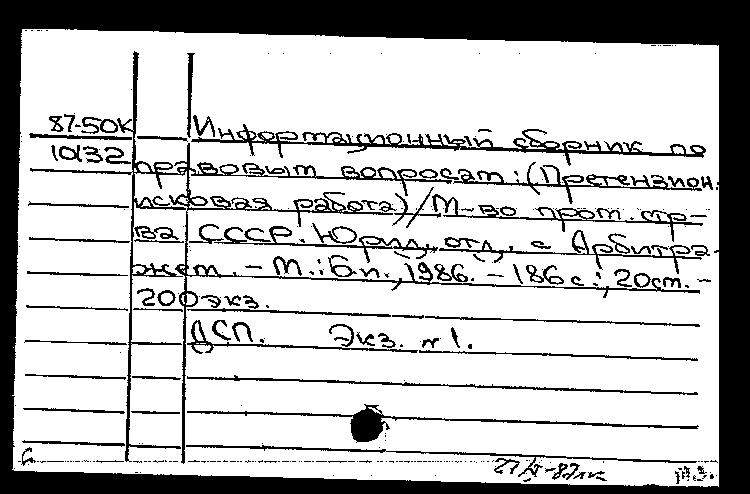 87-50К Информационный сборник по
10132 правовым вопросам: (Претензион.
исковая работа) / М-во пром. стр-
ва СССР. Юрид. отд. с Арбитра-
жем. - М.: Б.и., 1986. - 186 с.; 20 см. -
200 экз.
ДСП. Экз. №1.